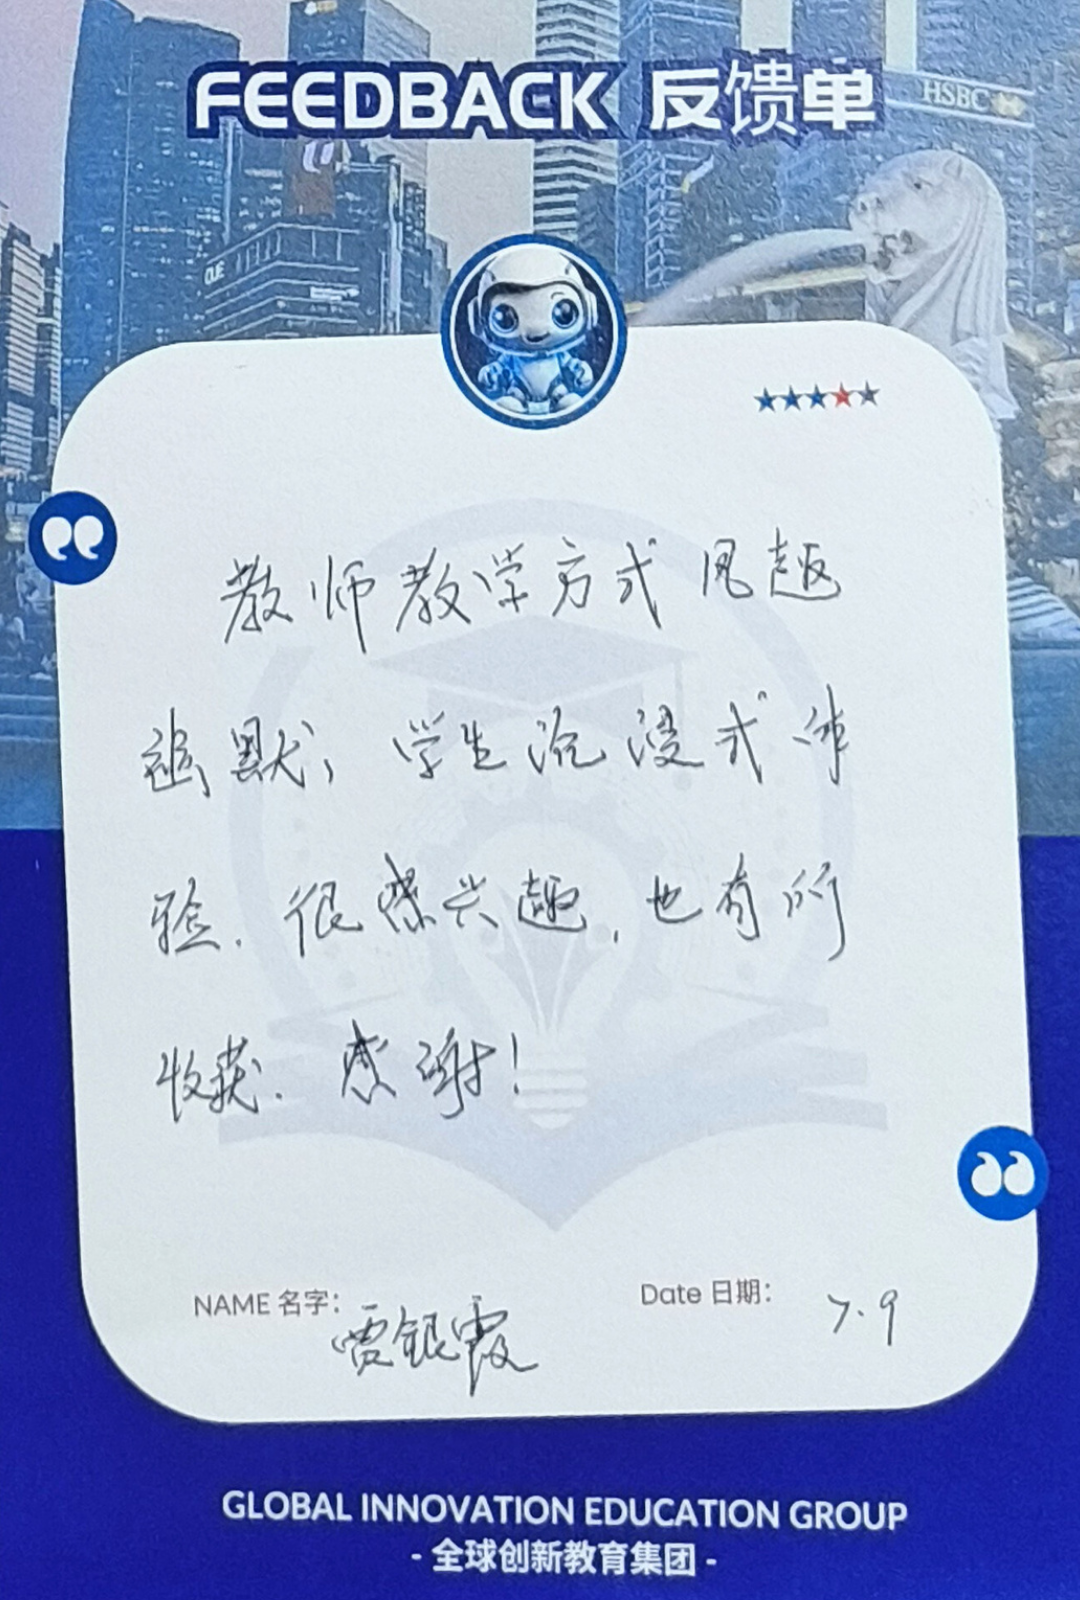 FEEDBACK 反馈单
HSBC
OUE
教师教学方式风趣
幽默，学生沉浸式体
验.很感兴趣，也有所
收获.感谢！
NAME 名字：贾银霞
Date 日期：7.9
GLOBAL INNOVATION EDUCATION GROUP
- 全球创新教育集团 -